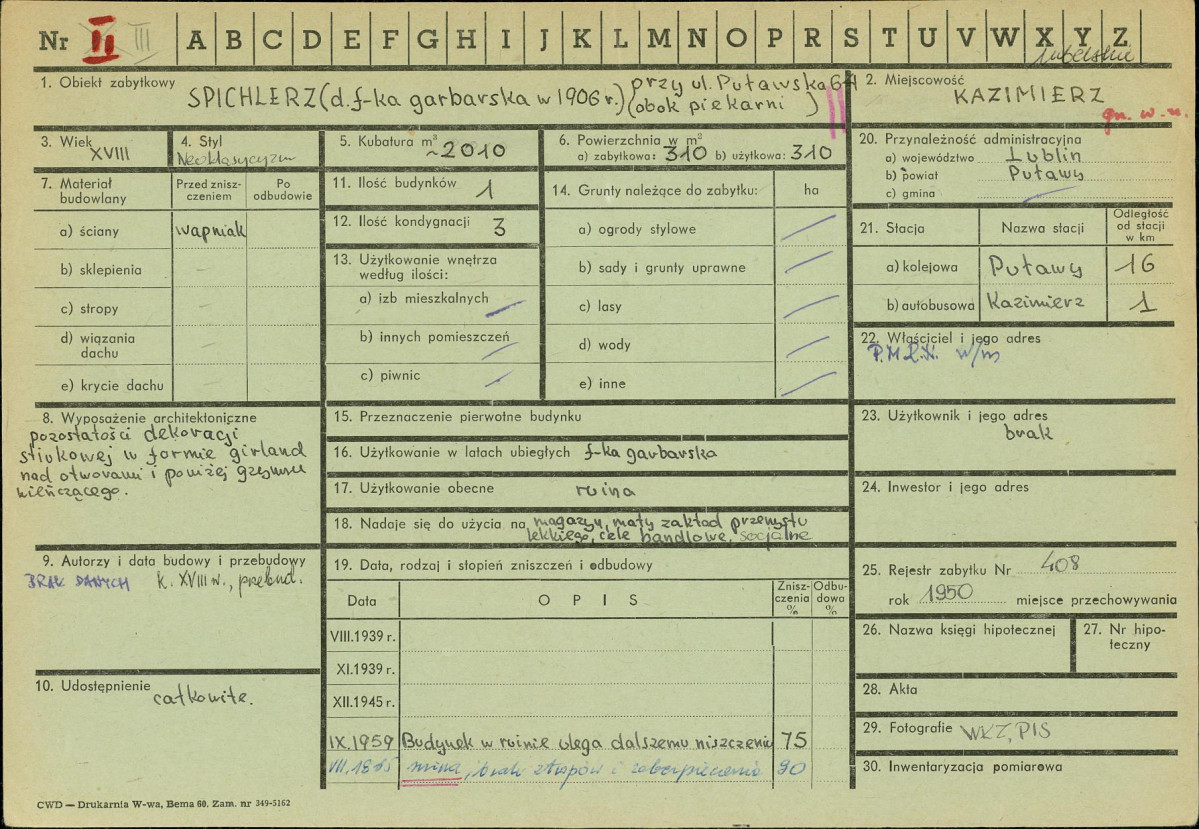 Nr II III A B C D E F G H I J K L M N O P R S T U V W X Y Z
lubelskie
1. Obiekt zabytkowy
SPICHLERZ (d. f-ka garbarska w 1906 r.) przy ul. Puławska 64
(obok piekarni )
2. Miejscowość
KAZIMIERZ
gm. w. m.
3. Wiek
XVIII
4. Styl
Neoklasycyzm
5. Kubatura m³
~2010
6. Powierzchnia w m²
a) zabytkowa: 310 b) użytkowa: 310
20. Przynależność administracyjna
a) województwo Lublin
b) powiat Puławy
c) gmina
7. Materiał budowlany
Przed zniszczeniem
Po odbudowie
a) ściany wapniak
b) sklepienia –
c) stropy –
d) wiązania dachu –
e) krycie dachu –
11. Ilość budynków 1
12. Ilość kondygnacji 3
13. Użytkowanie wnętrza
według ilości:
a) izb mieszkalnych
b) innych pomieszczeń
c) piwnic
14. Grunty należące do zabytku: ha
a) ogrody stylowe
b) sady i grunty uprawne
c) lasy
d) wody
e) inne
21. Stacja
Nazwa stacji
Odległość od stacji w km
a) kolejowa Puławy 16
b) autobusowa Kazimierz 1
22. Właściciel i jego adres
w/m
8. Wyposażenie architektoniczne
pozostałości dekoracji
stiukowej w formie girland
nad otworami i poniżej gzymsu
wieńczącego.
15. Przeznaczenie pierwotne budynku
16. Użytkowanie w latach ubiegłych f-ka garbarska
17. Użytkowanie obecne ruina
18. Nadaje się do użycia na magazyn, mały zakład przemysłu
lekkiego, cele handlowe, socjalne
23. Użytkownik i jego adres
brak
24. Inwestor i jego adres
9. Autorzy i data budowy i przebudowy
BRAK DANYCH k. XVIII w., przebud.
10. Udostępnienie
całkowite.
19. Data, rodzaj i stopień zniszczeń i odbudowy
Data
OPIS
Zniszczenia %
Odbudowa %
VIII.1939 r.
XI.1939 r.
XII.1945 r.
IX.1959 Budynek w ruinie ulega dalszemu niszczeniu 75
ruina, brak stropów i zabezpieczenia 90
25. Rejestr zabytku Nr 408
rok 1950 miejsce przechowywania
26. Nazwa księgi hipotecznej
27. Nr hipoteczny
28. Akta
29. Fotografie WKZ, PIS
30. Inwentaryzacja pomiarowa
CWD — Drukarnia W-wa, Bema 60. Zam. nr 349-5162